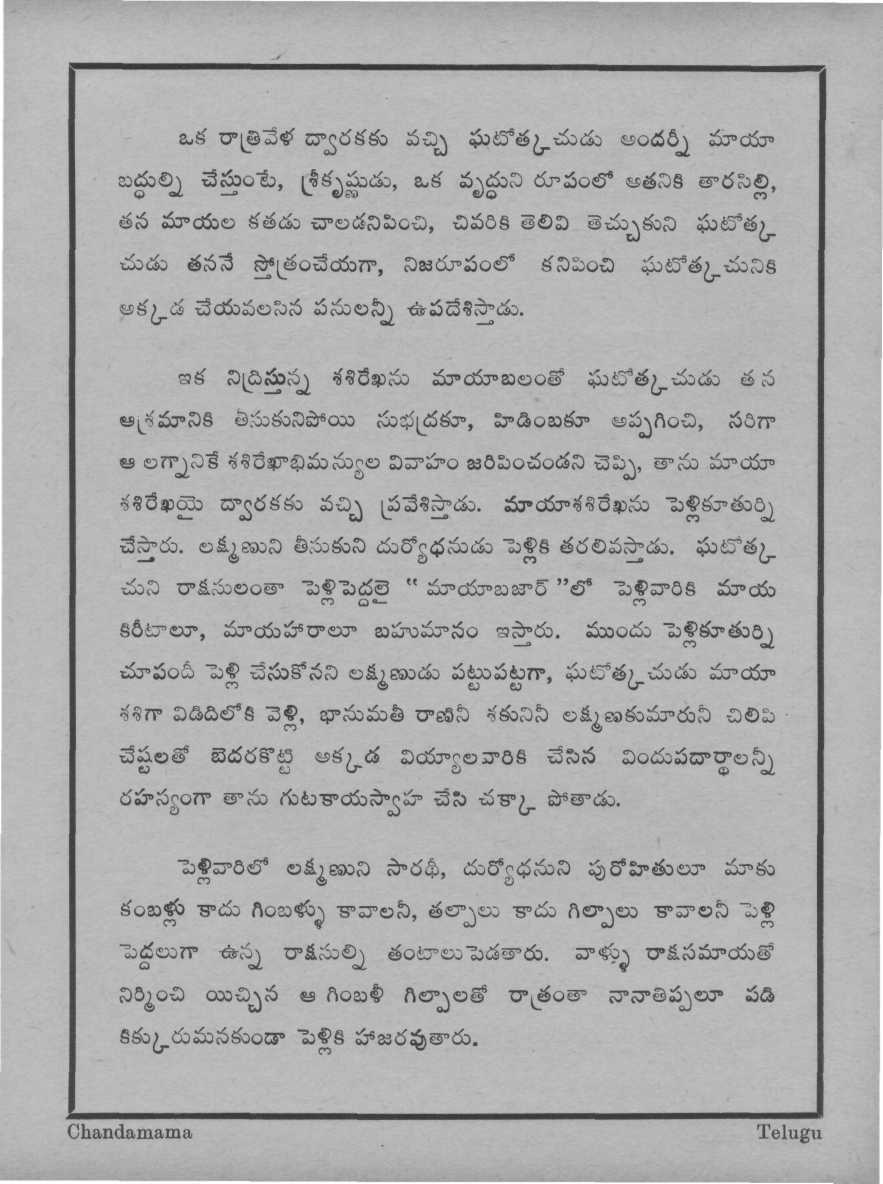 ఒక రాత్రివేళ ద్వారకకు వచ్చి ఘటోత్కచుడు అందర్నీ మాయా
బద్ధుల్ని చేస్తుంటే, శ్రీకృష్ణుడు, ఒక వృద్ధుని రూపంలో అతనికి తారసిల్లి,
తన మాయల కతడు చాలడనిపించి, చివరికి తెలివి తెచ్చుకుని ఘటోత్క
చుడు తననే స్తోత్రంచేయగా, నిజరూపంలో కనిపించి ఘటోత్కచునికి
అక్కడ చేయవలసిన పనులన్నీ ఉపదేశిస్తాడు.
ఇక నిద్రిస్తున్న శశిరేఖను మాయాబలంతో ఘటోత్కచుడు తన
ఆశ్రమానికి తీసుకునిపోయి సుభద్రకూ, హిడింబకూ అప్పగించి, సరిగా
ఆ లగ్నానికే శశిరేఖాభిమన్యుల వివాహం జరిపించండని చెప్పి, తాను మాయా
శశిరేఖయై ద్వారకకు వచ్చి ప్రవేశిస్తాడు. మాయాశశిరేఖను పెళ్లికూతుర్ని
చేస్తారు. లక్ష్మణుని తీసుకుని దుర్యోధనుడు పెళ్లికి తరలివస్తాడు. ఘటోత్క
చుని రాక్షసులంతా పెళ్లిపెద్దలై “మాయాబజార్”లో పెళ్లివారికి మాయ
కిరీటాలూ, మాయహారాలూ బహుమానం ఇస్తారు. ముందు పెళ్లికూతుర్ని
చూపందీ పెళ్లి చేసుకోనని లక్ష్మణుడు పట్టుపట్టగా, ఘటోత్కచుడు మాయా
శశిగా విడిదిలోకి వెళ్లి, భానుమతీ రాణినీ శకునినీ లక్ష్మణకుమారునీ చిలిపి
చేష్టలతో బెదరకొట్టి అక్కడ వియ్యాలవారికి చేసిన విందుపదార్థాలన్నీ
రహస్యంగా తాను గుటకాయస్వాహ చేసి చక్కా పోతాడు.
పెళ్లివారిలో లక్ష్మణుని సారథీ, దుర్యోధనుని పురోహితులూ మాకు
కంబళ్లు కాదు గింబళ్ళు కావాలనీ, తల్పాలు కాదు గిల్పాలు కావాలనీ పెళ్లి
పెద్దలుగా ఉన్న రాక్షసుల్ని తంటాలుపెడతారు. వాళ్ళు రాక్షసమాయతో
నిర్మించి యిచ్చిన ఆ గింబళీ గిల్పాలతో రాత్రంతా నానాతిప్పలూ పడి
కిక్కురుమనకుండా పెళ్లికి హాజరవుతారు.
Chandamama
Telugu